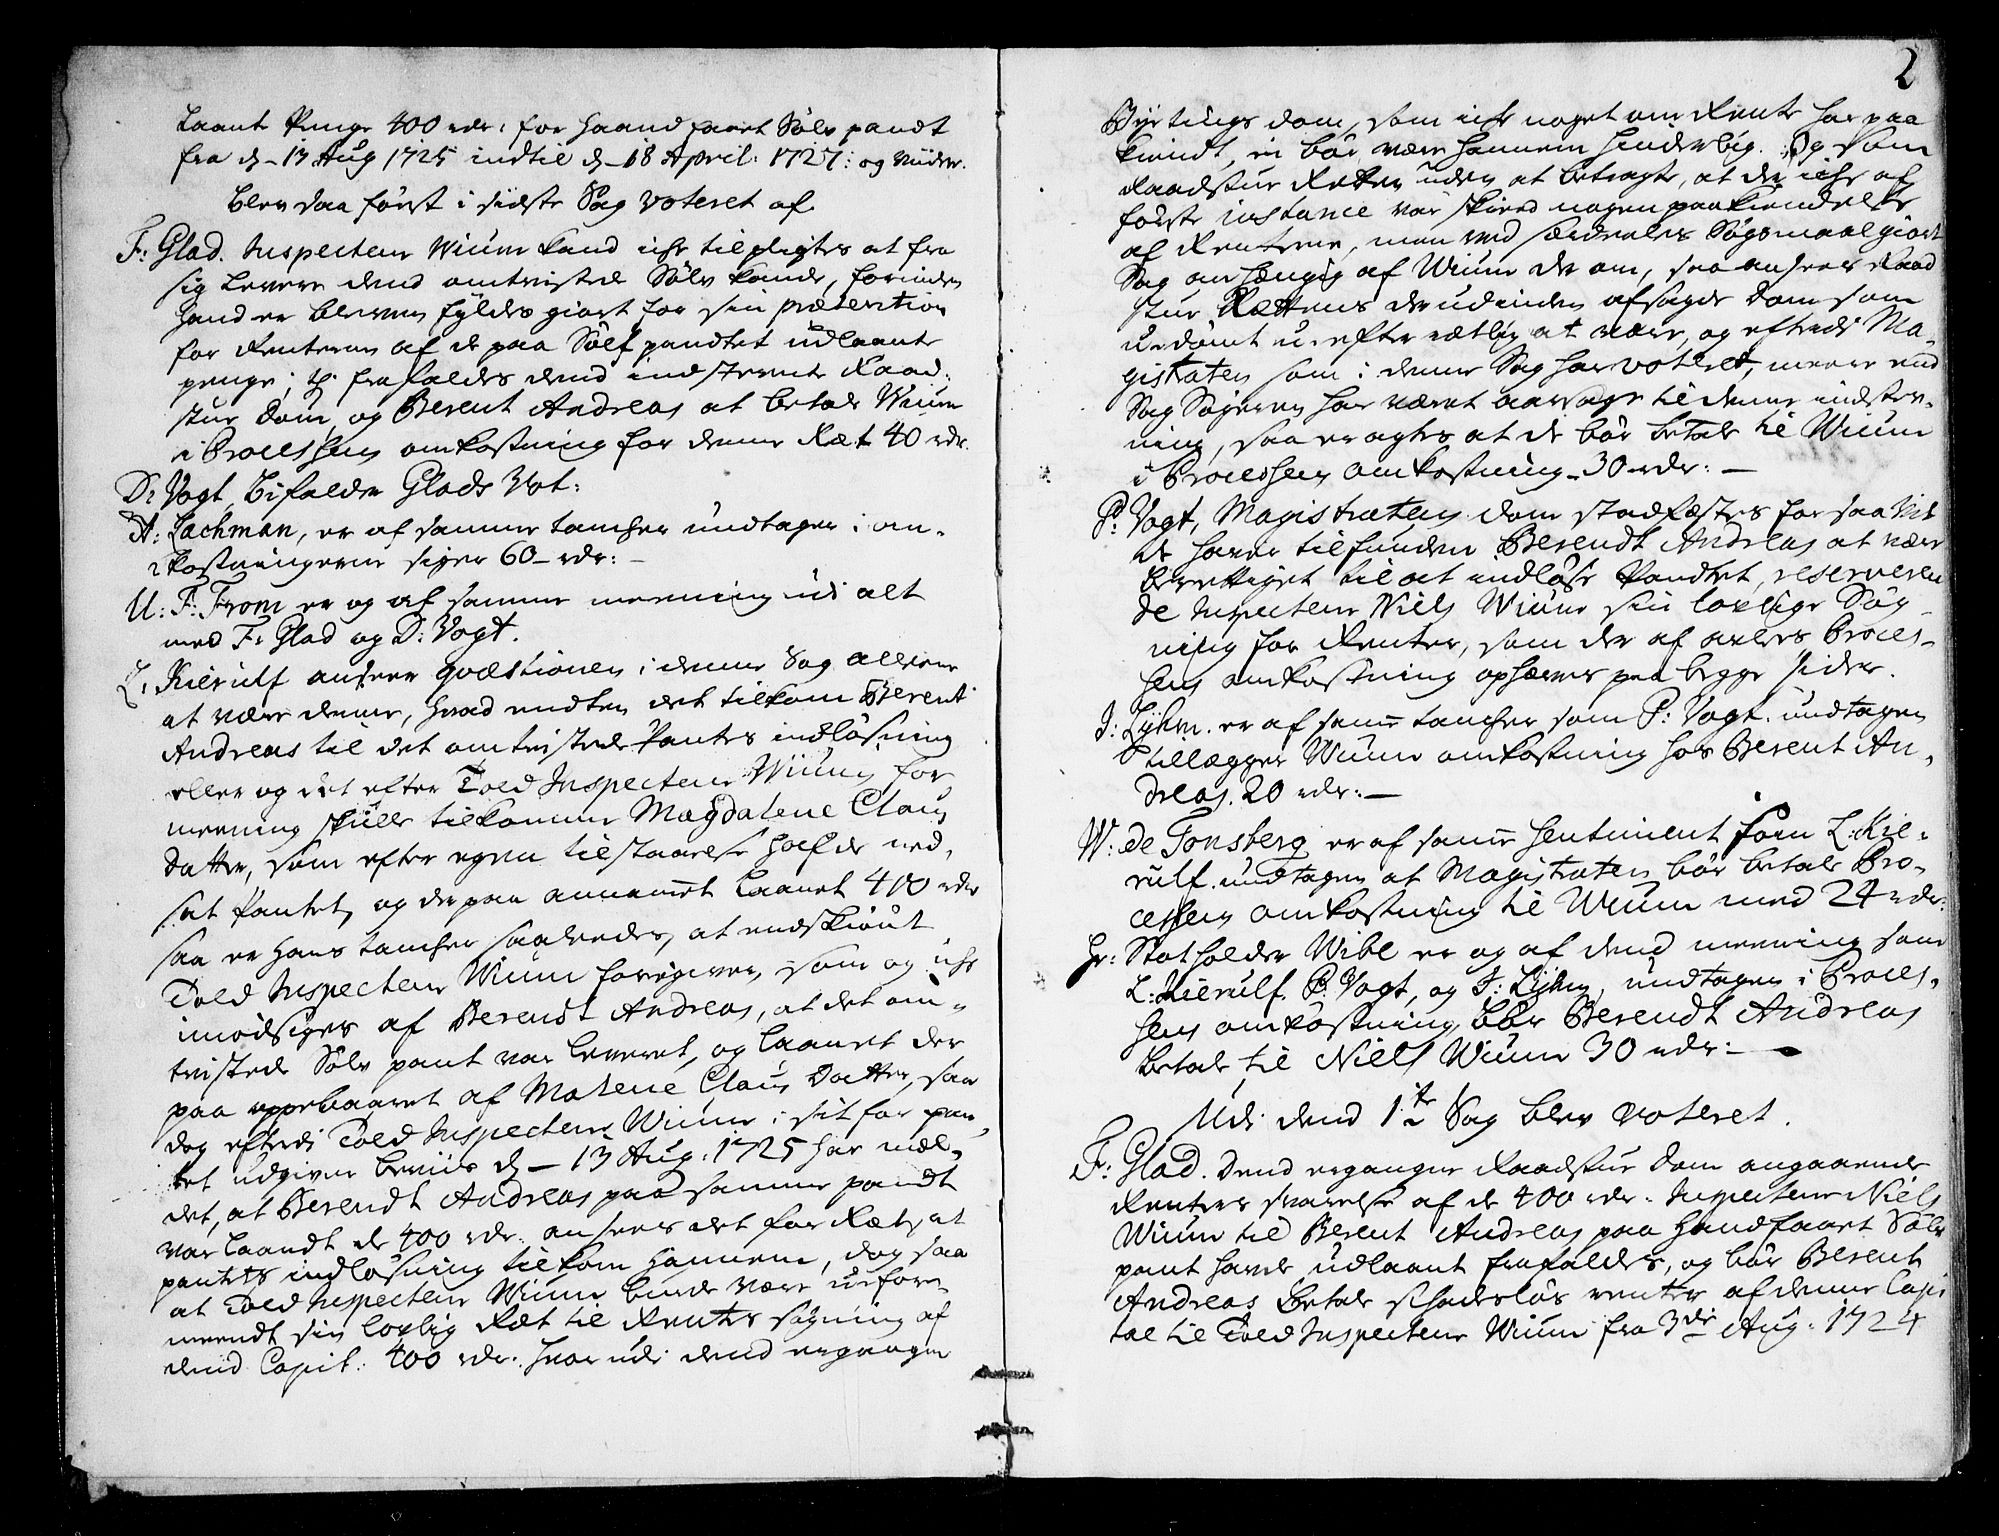 Laante Penge 400 rdr: for haand faaet Sølv pandt
fra d- 13 Aug 1725 indtil d- 18 April: 1727: og viider.
blev daa først i sidste Sag voteret af
F: Glad. Inspecteur Wiùm kand iche tilpligtes at fra
sig levere dend omtvistede Sølv kande, forinden
hand er bleven fyldes giort for sin prætention
for Renterne af de paa Sølf pandtet udlaante
penge; thi frafaldes dend indstevnte Raad-
stue dom, og Berent Andreas at betale Wium
i Processens omkostning for denne Ræt 40 rdr.
D: Vogt, bifalder Glads Vot:
A: Lachman, er af samme tancher undtagen i om-
kostningerne siger 60 - rdr: -
U: F: From er og af samme meening udi alt
med F: Glad og D: Vogt.
L: Kierulf anseer qvæstionen i denne Sag alleene
at være denne, hvad endten det tilkom Berent
Andreas til det omtvistede Pantes indløsning
eller og det efter Told Inspecteur Wiums for
meening skulle tilkomme Magdalene Claus
datter, som efter egen tilstaaelse hafde ned-
sat Pantet, og der paa annammet laanet 400 rdr
saa er hans tancher saaledes, at endskiønt
Told Inspecteur Wium foregiver, som og iche
imodsiges af Berendt Andreas, at det om-
tvistede Sølv pant var leveret, og laanet der
paa oppebaaret af Malene Claus Datter, saa
dog efterdi Told Inspecteur Wium i sit for pan-
tet udgivne beviis d - 13 Aug: 1725 har mel-
det, at Berendt Andreas paa samme pandt
var laandt de 400 rdr: ansees det for Ræt, at
pantets indløsning tilkom hannem, dog saa
at Told Inspecteur Wium burde være ufor-
meendt sin lovlig Ræt til Rentes søgning af
dend Capit: 400 rdr: hvor udi dend ergangne
2
Bytings dom, som iche noget om Rente har paa
kiendt, ei bør være hannem hinderlig. Og som
Raadstue Retten uden at betragte, at der iche af
første instance var skeed nogen paakiendelse
af Renterne, men ved særdeeles Søgsmaal giort
Sag anhængig af Wium der om, saa ansees Raad
stue Rettens derudinden afsagde dom som
udømt u-efterretlig at være, og efterdi Ma-
gistraten som i denne Sag har voteret, meere end
Sag Søgeren har været aarsage til denne indstev-
ning, saa eragtes at de bør betale til Wium
i Processens omkostning - 30 rdr: -
P: Vogt, Magistratens dom stadfæstes for saa vit
de haver tilfunden Berendt Andreas at være
berettiget til at indløse Pandtet, reserveren
de Inspecteur Niels Wium sin lovlige Søg
ning for Renter, som der af axleres, Proces-
sens omkostning ophæves paa begge sider.
J: Lyhm. er af samme tancher som P: Vogt. undtagen
tillægger Wium omkostning hos Berent An-
dreas. 20 rdr: -
W: de Tonsberg er af samme sentiment som L: Kie-
rulf. undtagen at Magistraten bør betale Pro-
cessens omkostning til Wium med 24 rdr:
Hr: Statholder Wibe er og af dend meening som
L: Kierulf. P: Vogt, og J: Lyhm, undtagen i Proces-
sens omkostning bør Berendt Andreas
betale til Niels Wium 30 rdr: -
Udi dend 1te Sag blev voteret.
F: Glad. Dend ergangne Raadstue dom angaaende
Renters svarelse af de 400 rdr: Inspecteur Niels
Wium til Berent Andreas paa haandfaaet Sølv
pant havde udlaant frafaldes, og bør Berent
Andreas betale schadesløs renter af denne Capi
tal til Told Inspecteur Wium fra 3die Aug: 1724